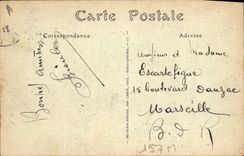 Carte Postale
Correspondance
Adresse
Bonne amitiés
Monsieur et Madame
Escartefigue
15 boulevard Dauzac
Marseille
B. d R
157M